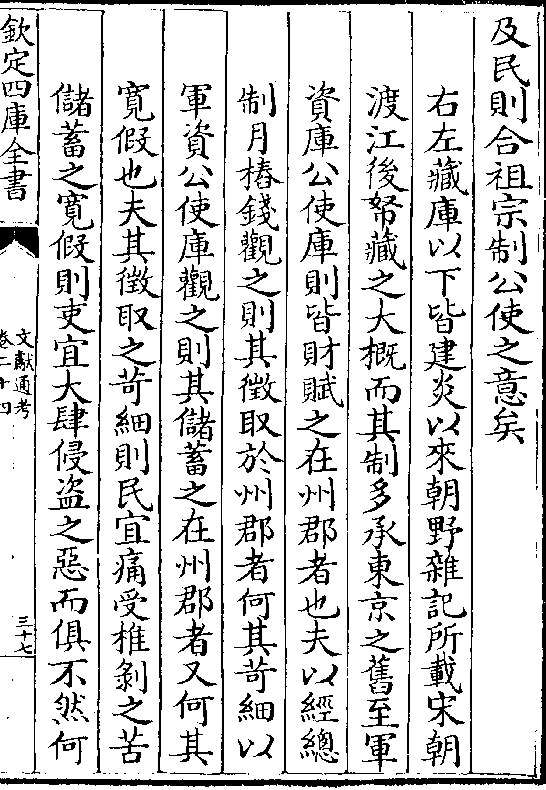 及民則合祖宗制公使之意矣
右左藏庫以下皆建炎以來朝野雜記所載宋朝
渡江後帑藏之大概而其制多承東京之舊至軍
資庫公使庫則皆財賦之在州郡者也夫以經總
制月樁錢觀之則其徵取於州郡者何其苛細以
軍資公使庫觀之則其儲蓄之在州郡者又何其
寛假也夫其徵取之苛細則民宜痛受椎剝之苦
儲蓄之寛假則吏宜大肆侵盜之惡而俱不然何
欽定四庫全書
文獻通考
卷二十四
三十七